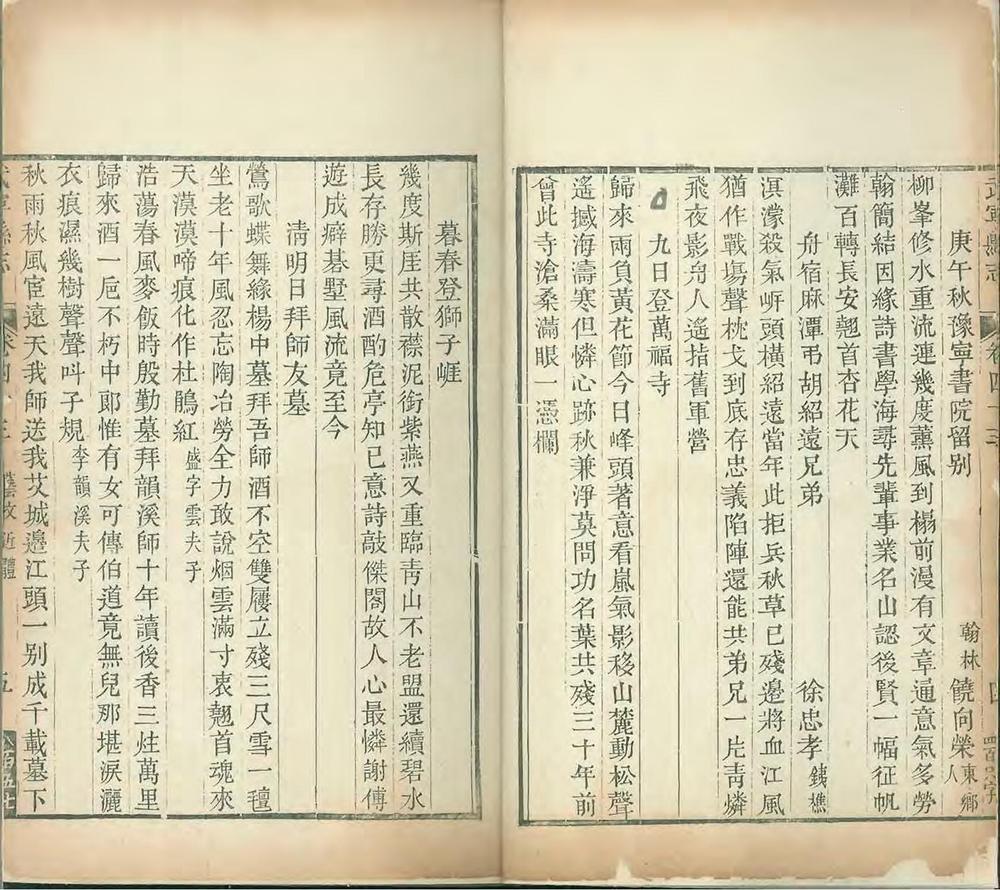 武寧縣志 卷四十三 四
庚午秋豫寧書院留别 翰林饒向榮東鄉人
柳峯修水重流連幾度薰風到榻前漫有文章逼意氣多勞
翰簡結因緣詩書學海尋先輩事業名山認後賢一幅征帆
灘百轉長安翹首杏花天
舟宿麻潭弔胡紹遠兄弟 徐忠孝鋳樵
溟濛殺氣岍頭橫紹遠當年此拒兵秋草已殘邊將血江風
猶作戰塲聲枕戈到底存忠義陷陣還能共弟兄一片靑燐
飛夜影舟人遙指舊軍營
九日登萬福寺
歸來兩負黃花節今日峰頭著意看嵐氣影移山麓動松聲
遙撼海濤寒但憐心跡秋兼淨莫問功名葉共殘三十年前
曾此寺滄桑滿眼一憑欄
暮春登獅子崕
幾度斯厓共散襟泥銜紫燕又重臨靑山不老盟還續碧水
長存勝更尋酒酌危亭知已意詩敲傑閣故人心最憐謝傅
遊成癖碁墅風流竟至今
淸明日拜師友墓
鶯歌蝶舞緣楊中墓拜吾師酒不空雙屨立殘三尺雪一氊
坐老十年風忍忘陶冶勞全力敢說烟雲滿寸衷翹首魂來
天漠漠啼痕化作杜鵑紅 盛字雲夫子
浩蕩春風麥飯時殷勤墓拜韻溪師十年讀後香三炷萬里
歸來酒一巵不朽中郞惟有女可傳伯道竟無兒那堪淚灑
衣痕濕幾樹聲聲叫子規 李韻溪夫子
秋雨秋風宦遠天我師送我艾城邊江頭一别成千載墓下
武寧縣志 卷四十三 藝文 近體 五